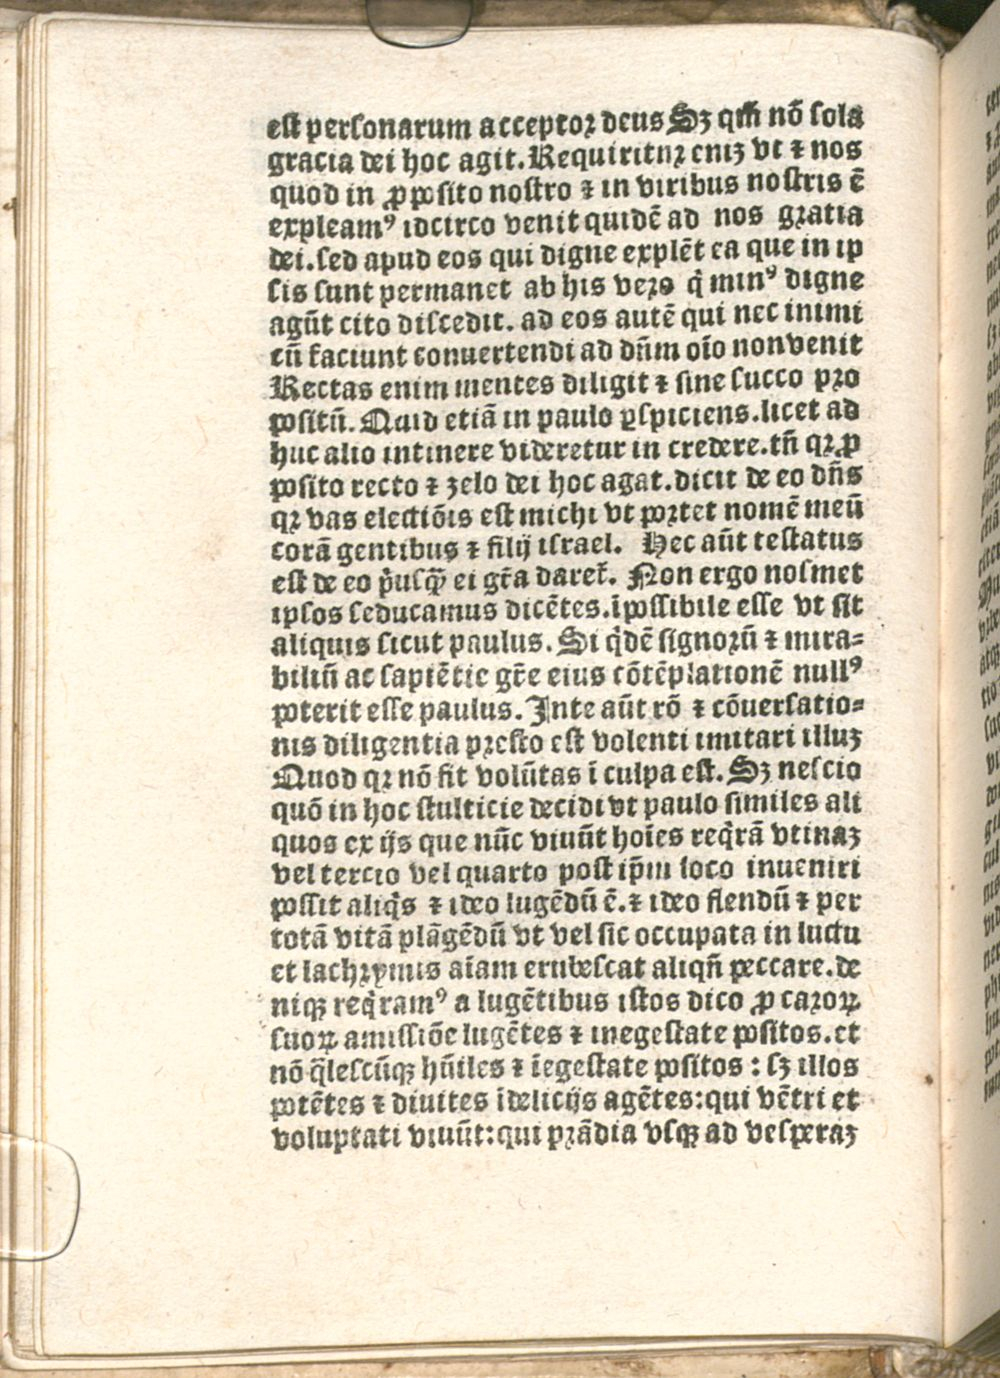 est personarum acceptoꝛ deus Sꝫ qm̄ nō sola
gracia dei hoc agit. Requiritnꝛ eniꝫ vt ⁊ nos
quod in ꝓposito nostro ⁊ in viribus nostris ē
expleamꝰ idcirco venit quidē ad nos gꝛatia
dei. sed apud eos qui digne explēt ea que in ip
sis sunt permanet ab his veꝛo q̇ minꝰ digne
agūt cito discedit. ad eos autē qui nec inimi
cū faciunt conuertendi ad dn̄m oīo non venit
Rectas enim mentes diligit ⁊ sine succo pꝛo
positū. Quid etiā in paulo ꝑspiciens. licet ad
huc alio intinere videretur in credere. tn̄ qꝛ ꝓ
posito recto ⁊ zelo dei hoc agat. dicit de eo dn̄s
qꝛ vas electiōis est michi vt poꝛtet nomē meū
corā gentibus ⁊ filij israel. Hec aūt testatus
est de eo p̓usqꝫ̄ ei gr̄a daret̄. Non ergo nosmet
ipsos seducamus dicētes. īpossibile esse vt sit
aliquis sicut paulus. Si q̇dē signoꝛū ⁊ mira-
biliū ac sapiētie gr̄e eius cōtēplationē nullꝰ
poterit esse paulus. Inte aūt rō ⁊ cōuersatio-
nis diligentia pꝛesto est volenti imitari illuꝫ
Quod qꝛ nō fit volūtas ī culpa est. Sꝫ nescio
quō in hoc stulticie decidi vt paulo similes ali
quos ex ijs que nūc viuūt hoīes req̇rā vtinaꝫ
vel tercio vel quarto post ip̄m loco inueniri
possit aliq̇s ⁊ ideo lugēdū ē. ⁊ ideo flendū ⁊ per
totā vitā plāgēdū vt vel sic occupata in luctu
et lachꝛymis aīam erubescat aliqn̄ peccare. de
niqꝫ req̇ramꝰ a lugētibus istos dico ꝓ caꝛoꝝ
suoꝝ amissiōe lugētes ⁊ inegestate positos. et
nō q̄lescūqꝫ hūiles ⁊ īegestate positos : sꝫ illos
potētes ⁊ diuites īdelicijs agētes: qui vētri et
voluptati viuūt: qui pꝛādia vsqꝫ ad vesperaꝫ